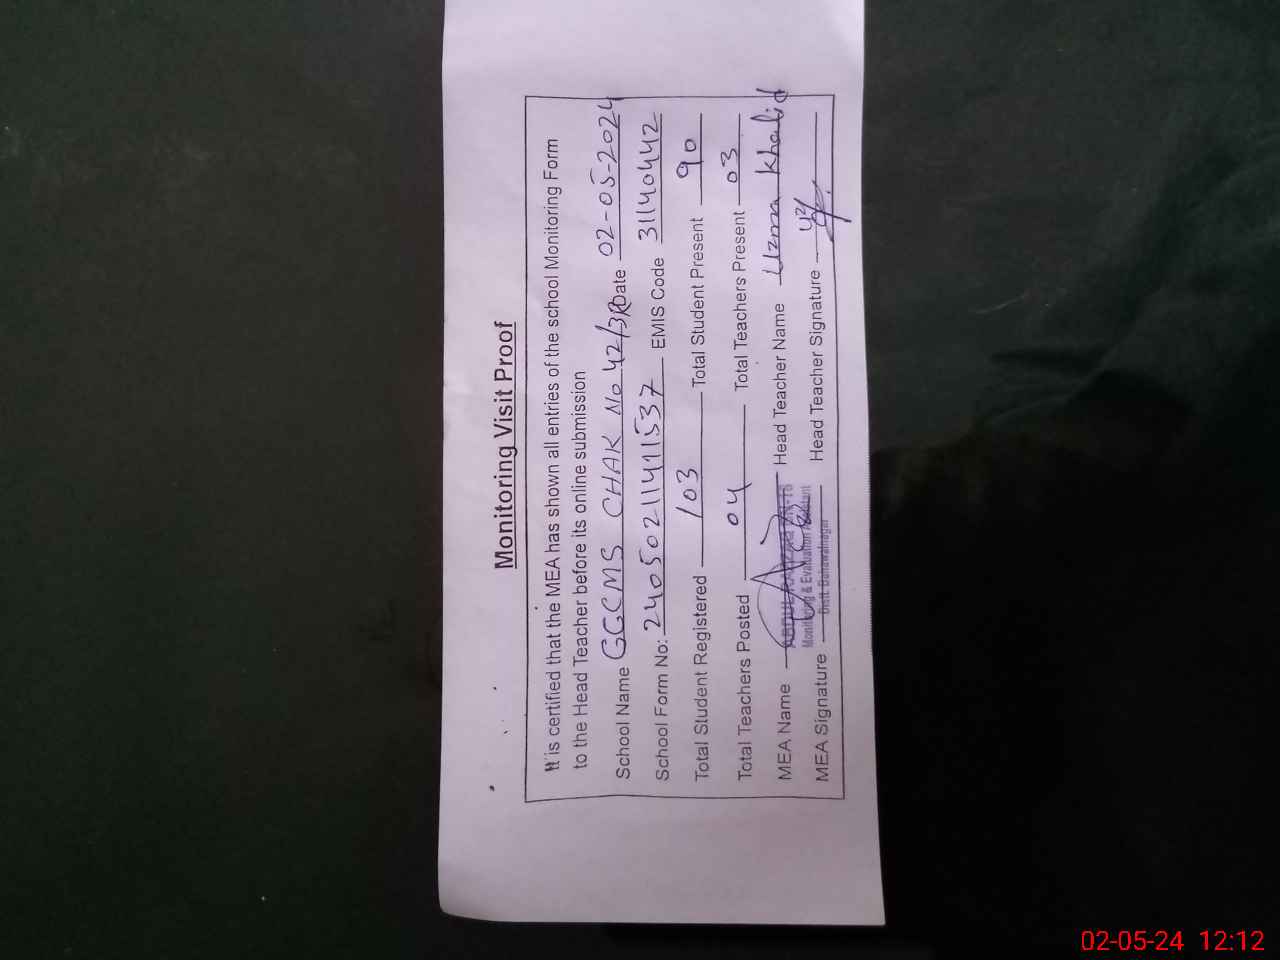 Monitoring Visit Proof
It is certified that the MEA has shown all entries of the school Monitoring Form
to the Head Teacher before its online submission
School Name GGCMS CHAK No 42/3R Date 02-05-2024
School Form No: 24050211411537 EMIS Code 31140442
Total Student Registered 103 Total Student Present 90
Total Teachers Posted 04 Total Teachers Present 03
MEA Name Head Teacher Name Uzma Khalid
Monitoring & Evaluation Assistant
MEA Signature Distt. Bahawalnagar Head Teacher Signature
02-05-24 12:12